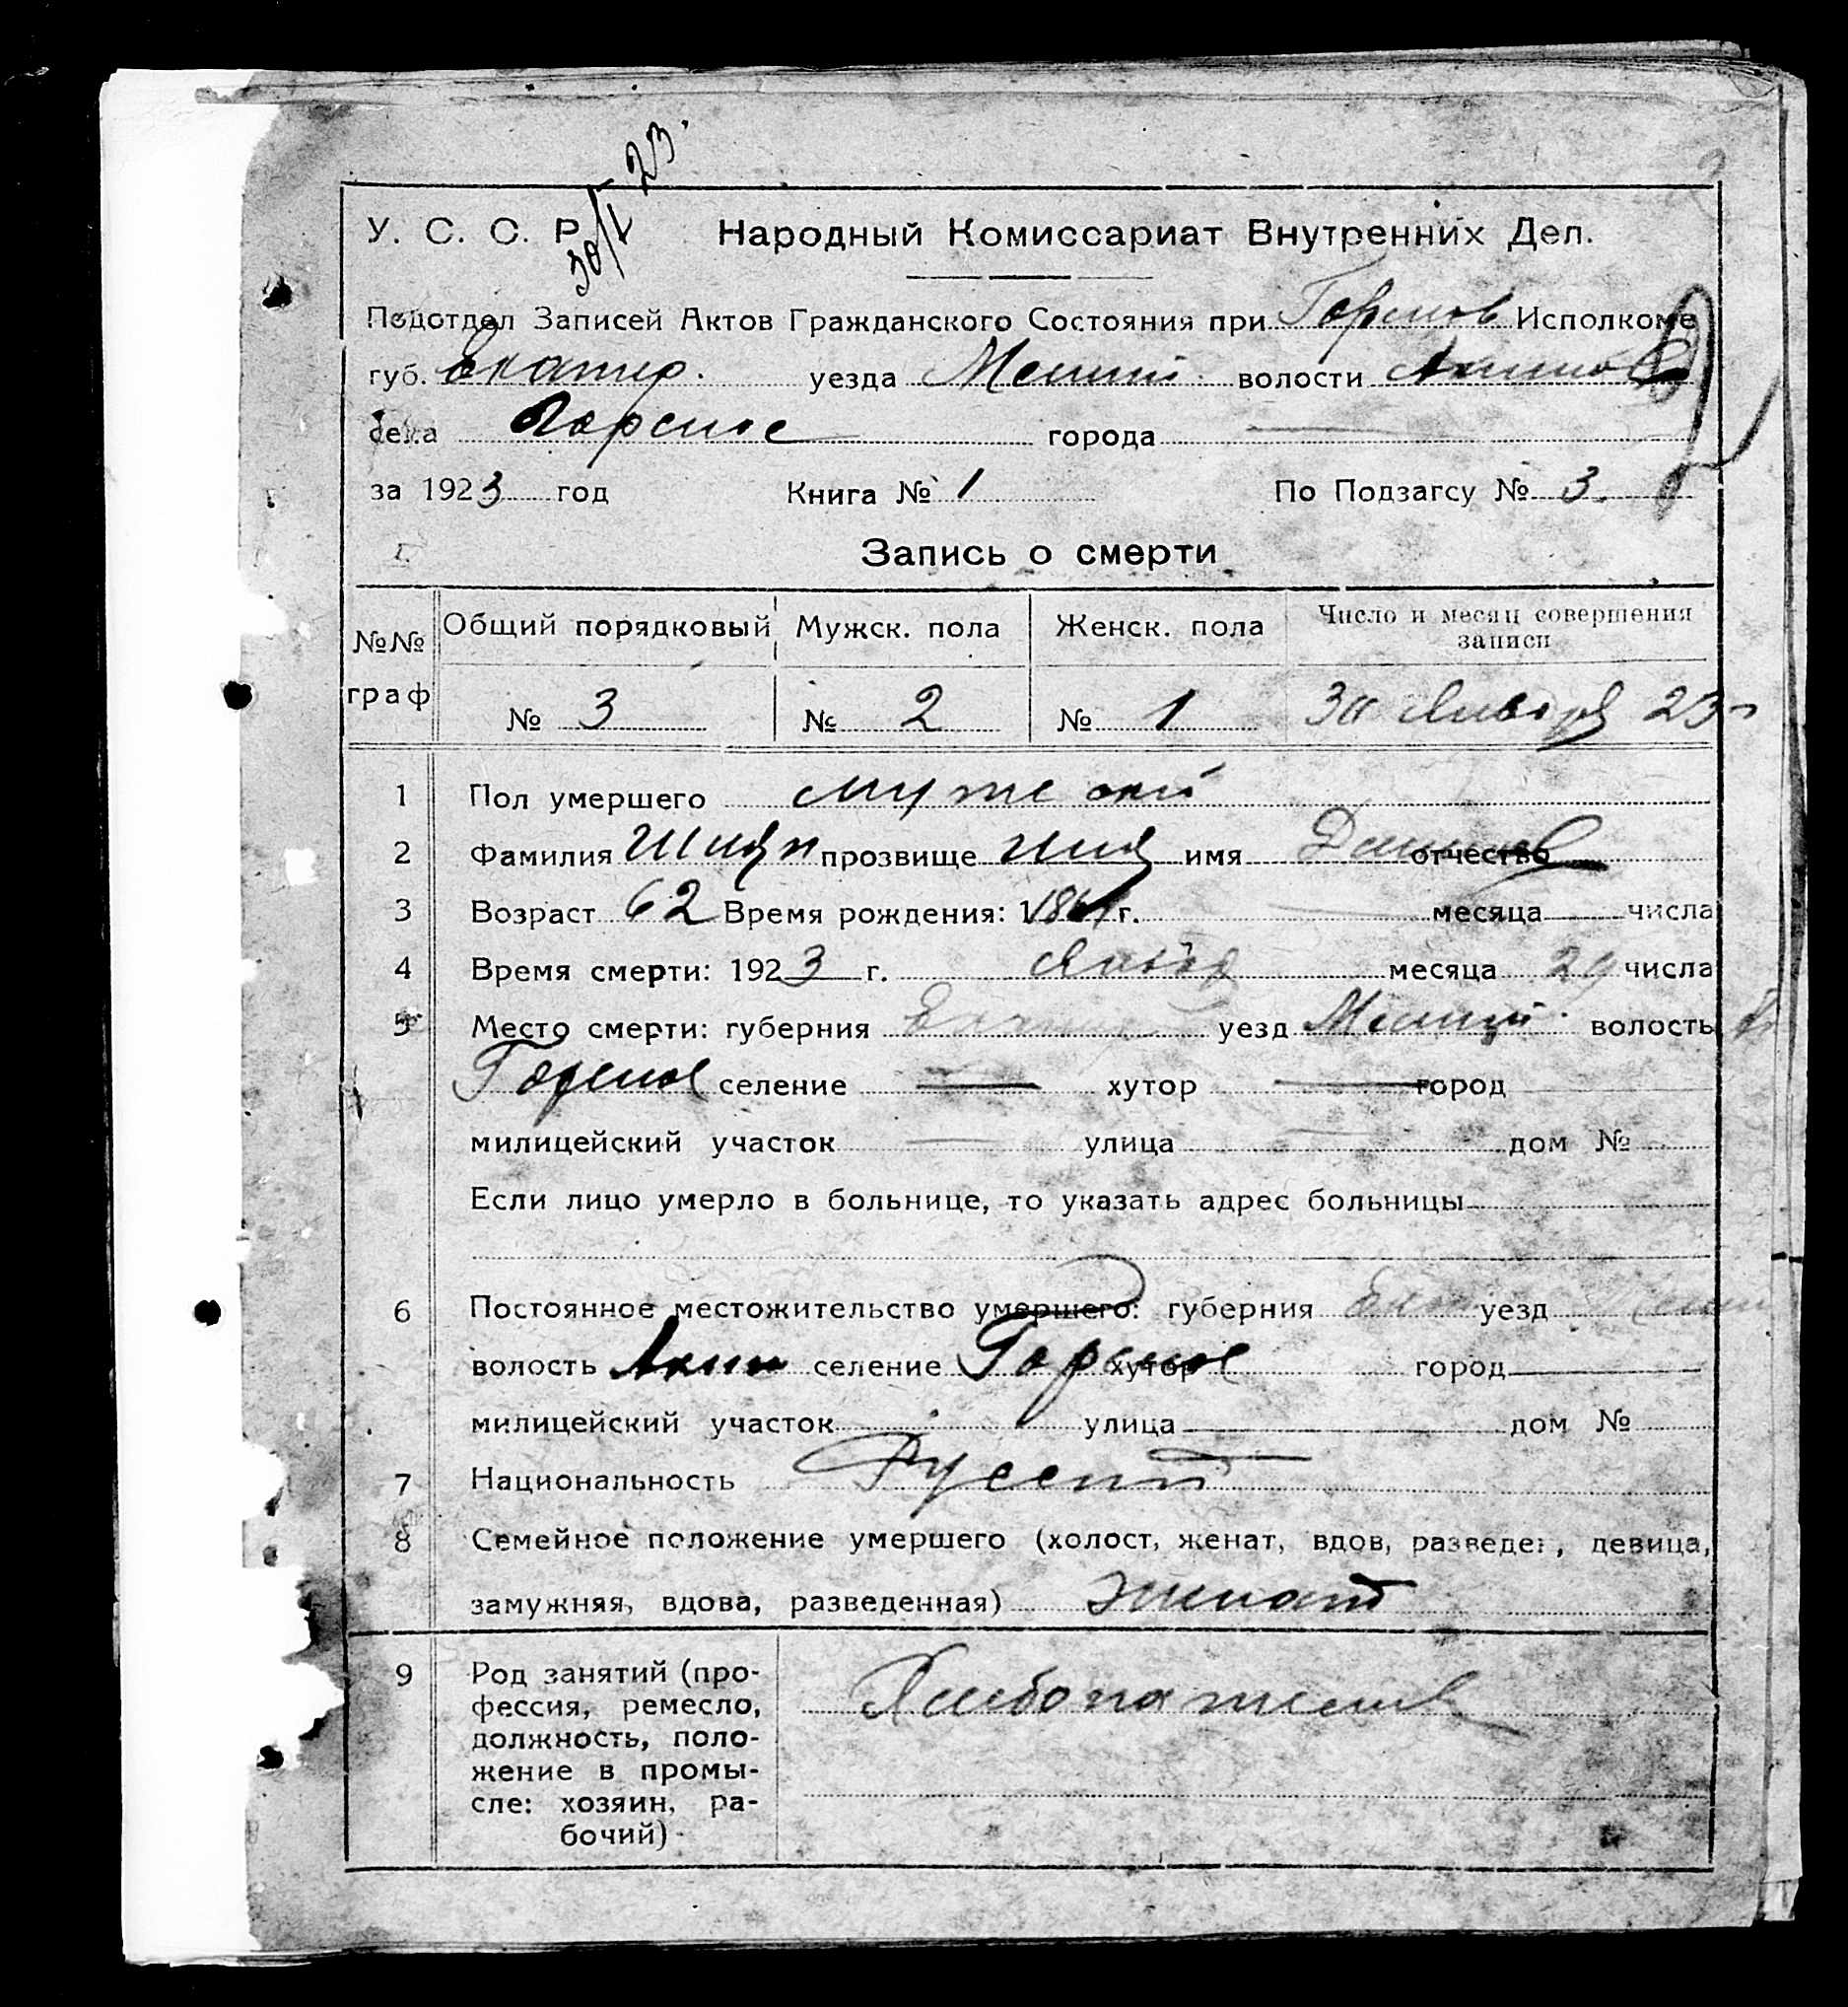 30/I 23.
У. С. С. Р. Народный Комиссариат Внутренних Дел.
Подотдел Записей Актов Гражданского Состояния при Горенов Исполкоме
губ. Екатер. уезда уезда волости Акимов
села Гореное города
за 1923 год Книга № 1 По Подзагсу № 3.
Запись о смерти
№№ граф Общий порядковый Мужск. пола Женск. пола Число и месяц совершения записи
№ 3 № 2 № 1 30 Января 23
1 Пол умершего мужской
2 Фамилия прозвище имя отчество
3 Возраст 62 Время рождения: 1861 г. месяца числа
4 Время смерти: 1923 г. месяца 29 числа
5 Место смерти: губерния уезд волость
селение хутор город
милицейский участок улица дом №
Если лицо умерло в больнице, то указать адрес больницы
6 Постоянное местожительство умершего: губерния уезд
волость Аким селение хутор город
милицейский участок улица дом №
7 Национальность Русский
8 Семейное положение умершего (холост, женат, вдов, разведен, девица,
замужняя, вдова, разведенная) женат
9 Род занятий (про-
фессия, ремесло,
должность, поло-
жение в промы-
сле: хозяин, ра-
бочий)
Хлебопашец